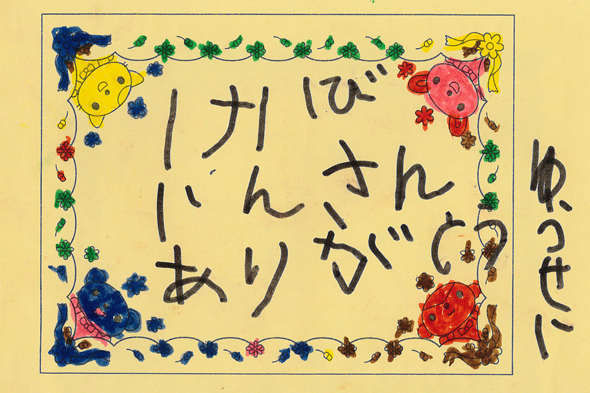 けいび
いんさん
ありがとう
ゆうせい